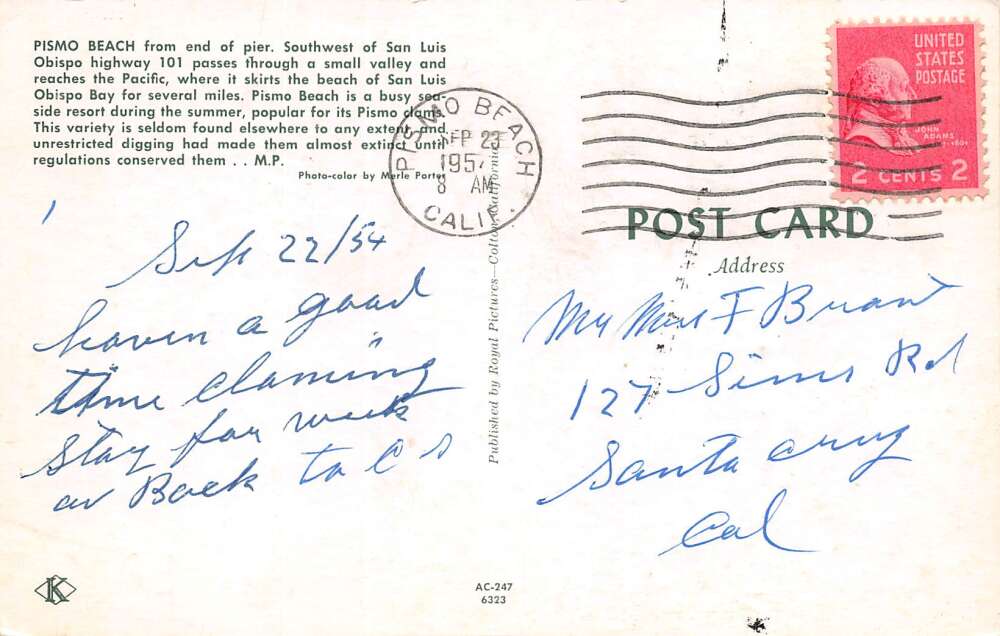 PISMO BEACH from end of pier. Southwest of San Luis
Obispo highway 101 passes through a small valley and
reaches the Pacific, where it skirts the beach of San Luis
Obispo Bay for several miles. Pismo Beach is a busy sea-
side resort during the summer, popular for its Pismo clams.
This variety is seldom found elsewhere to any extent and
unrestricted digging had made them almost extinct until
regulations conserved them . . M.P.
Photo-color by Merle Porter
PISMO BEACH
SEP 23
1954
8 AM
CALIF.
UNITED
STATES
POSTAGE
JOHN
ADAMS
2 CENTS 2
POST CARD
Address
Sept 22/54
haven a good
time claming
stay for week
or Back to
Published by Royal Pictures—Colton, California
Mr Mrs F
127 Sims Rd
Santa Cruz
Cal
K
AC-247
6323